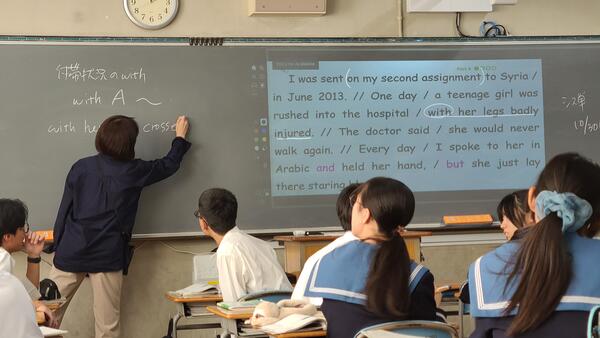 付帯状況のwith
with A 〜
with
I was sent (on my second assignment) to Syria /
in June 2013. // One day / a teenage girl was
rushed into the hospital / with her legs badly
injured. // The doctor said / she would never
walk again. // Every day / I spoke to her in
Arabic and held her hand, / but she just lay
there staring
10/30